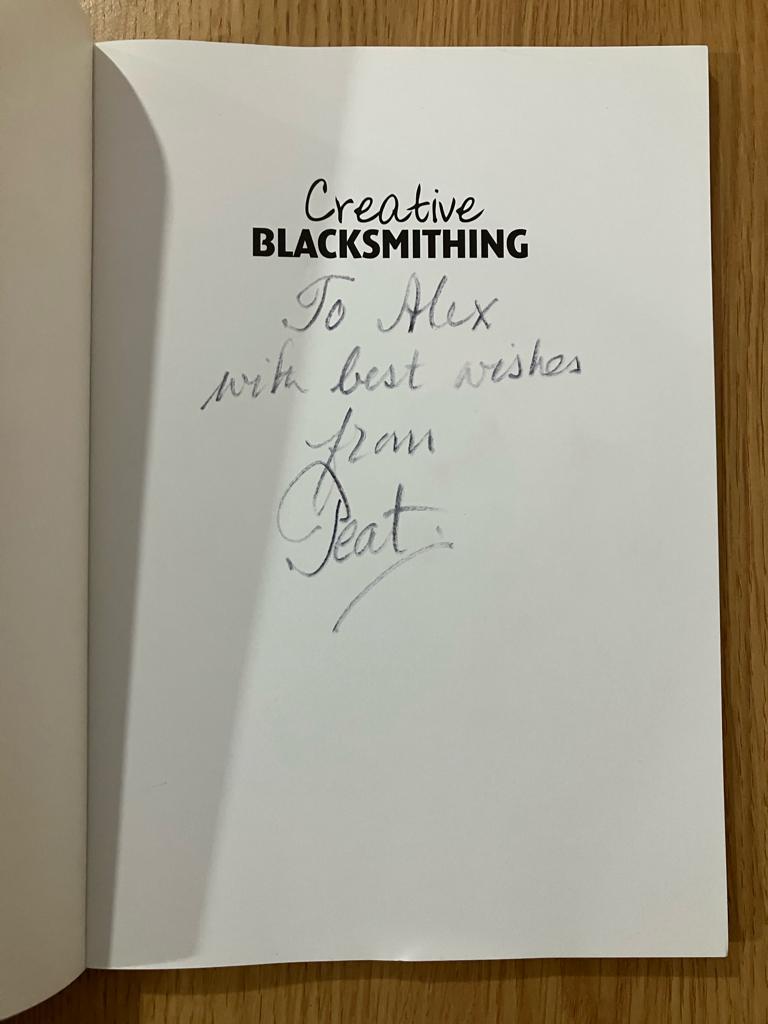 Creative
BLACKSMITHING
To Alex
with best wishes
from
Peat.